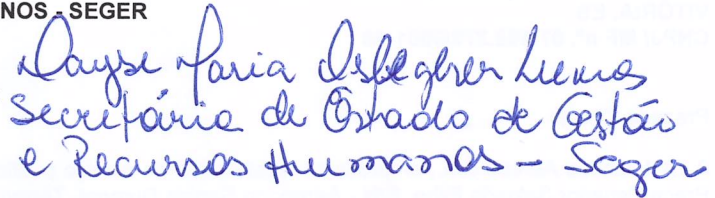 NOS - SEGER
Dayse Maria Oslegher Lemos
Secretária de Estado de Gestão
e Recursos Humanos - Seger